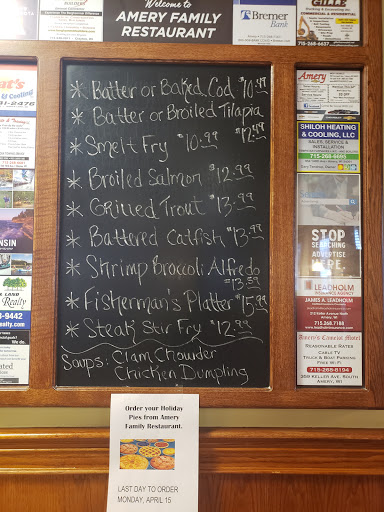 Welcome to
AMERY FAMILY
RESTAURANT
Bremer
Bank
GILLE
715-268-6637
* Batter or Baked Cod $10.49
* Batter or Broiled Tilapia
$12.49
* Smelt Fry $10.99
* Broiled Salmon $12.99
* Grilled Trout $13.99
* Battered Catfish $13.99
* Shrimp Broccoli Alfredo
$13.59
* Fisherman's Platter $15.99
* Steak Stir Fry $12.99
Soups: Clam Chowder
Chicken Dumpling
& Cooling
31-2476
NSIN
LAND
Realty
-9442
realty.com
Amery
SHILOH HEATING
& COOLING, LLC
SALES, SERVICE &
INSTALLATION
715-268-6695
STOP
SEARCHING
ADVERTISE
HERE.
LEADHOLM
INSURANCE AGENCY
JAMES A. LEADHOLM
Amery, WI
715.268.7188
Amery's Camelot Motel
REASONABLE RATES
CABLE TV
TRUCK & BOAT PARKING
FREE WI FI
715-268-8194
359 KELLER AVE. SOUTH
AMERY, WI
Order your Holiday
Pies from Amery
Family Restaurant.
LAST DAY TO ORDER
MONDAY, APRIL 15